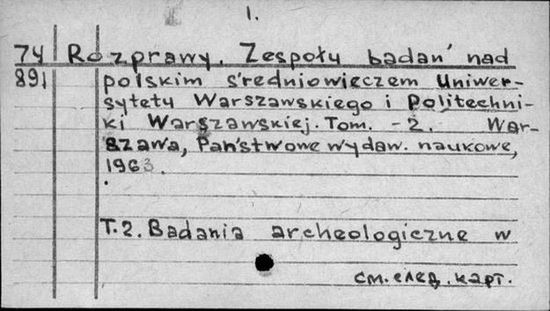 1.
74 Rozprawy. Zespoły badań nad
891 polskim średniowieczem Uniwer-
sytetu Warszawskiego i Politechni-
ki Warszawskiej. Tom. - 2. War-
szawa, Państwowe wydaw. naukowe,
1963.
T.2. Badania archeologiczne w
см. след. карт.